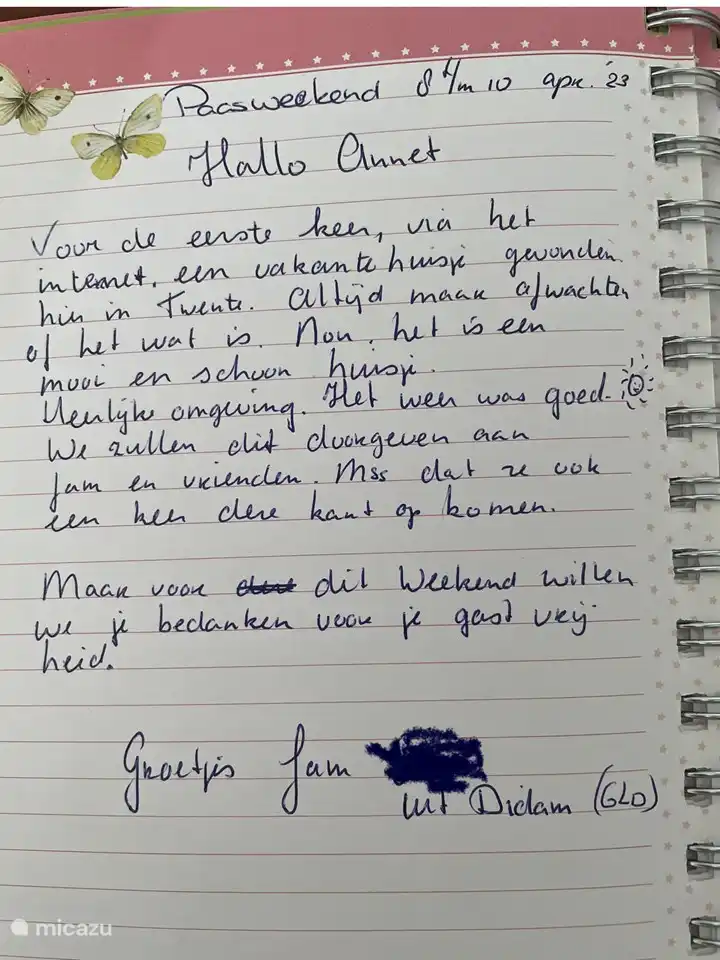 Paasweekend 8 t/m 10 apr. '23
Hallo Annet
Voor de eerste keer, via het
internet, een vakantie huisje gevonden
hier in Twente. Altijd maar afwachten
of het wat is. Nou, het is een
mooi en schoon huisje.
Heerlijke omgeving. Het weer was goed.
We zullen dit doorgeven aan
fam en vrienden. Mss dat ze ook
een keer deze kant op komen.
Maar voor dit weekend willen
we je bedanken voor je gast vrij
heid.
Groetjes fam
uit Didam (GLD)
micazu